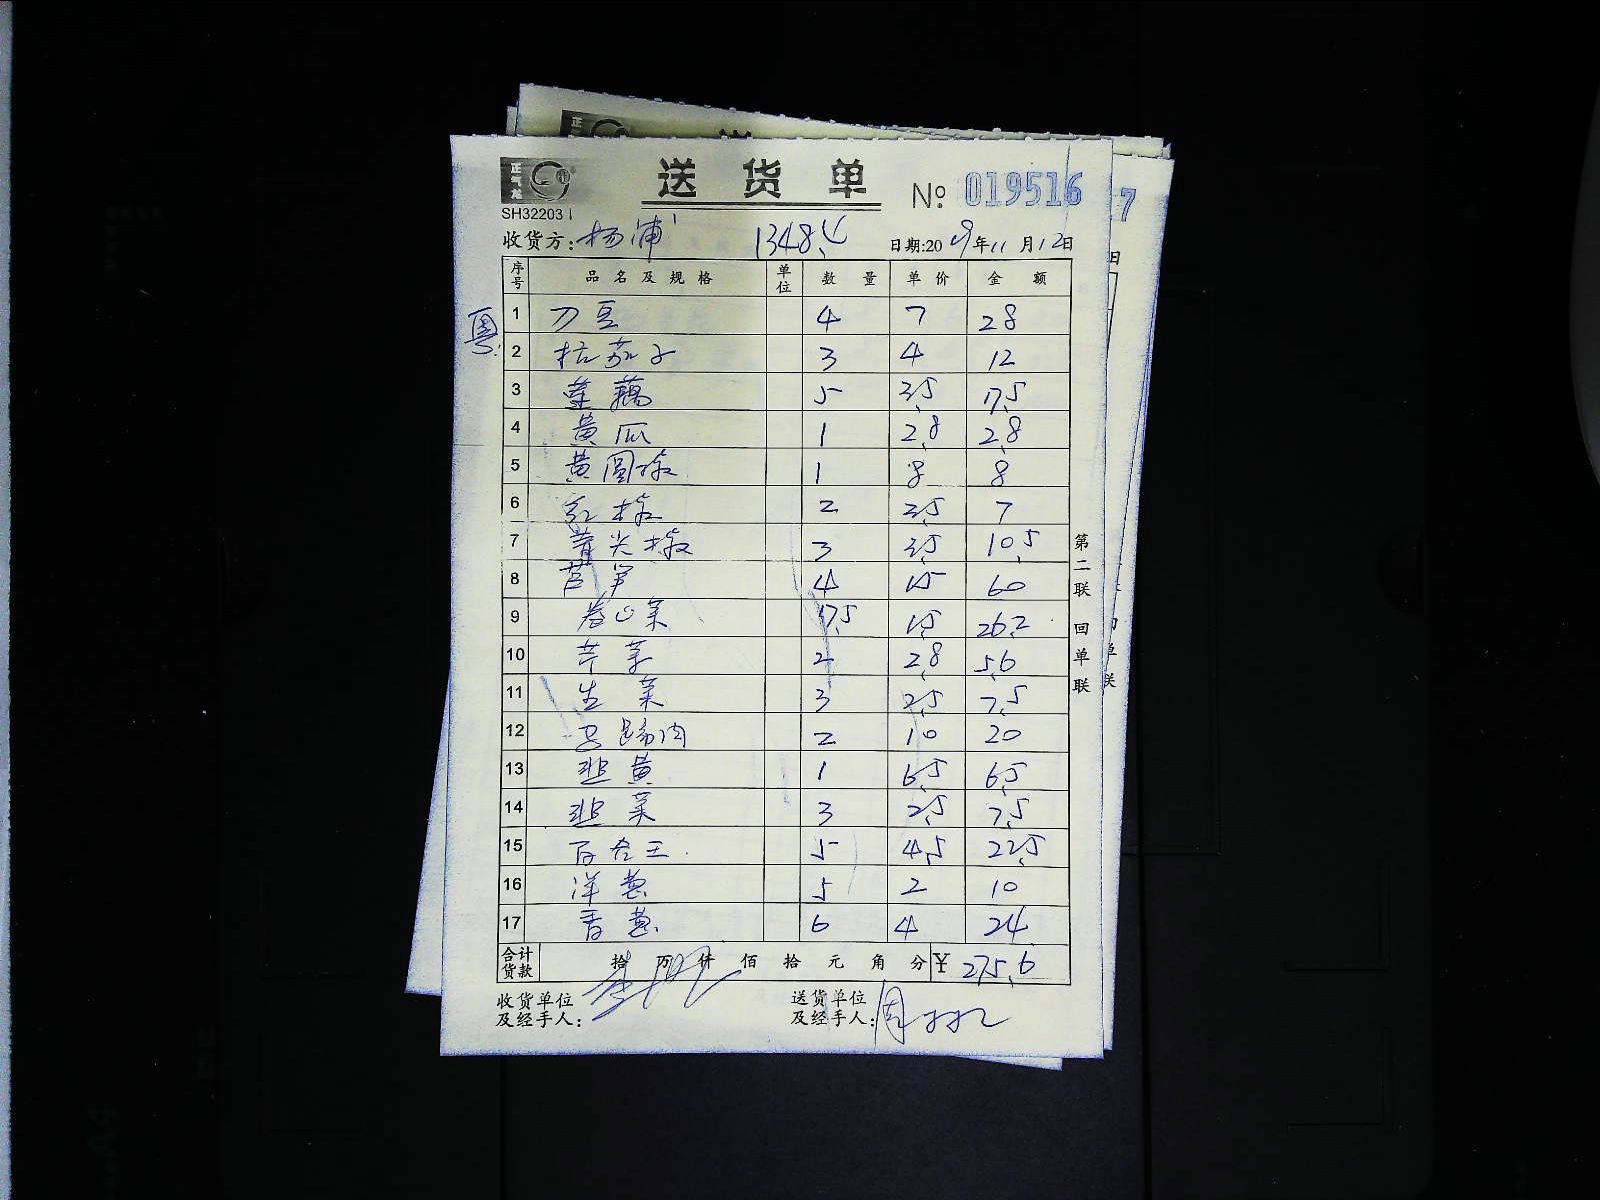 送货单 № 019516
SH32203
收货方: 杨浦 1348.4 日期:2009年11月12日
序号 品名及规格 单位 数量 单价 金额
粤
1 刀豆 4 7 28
2 杭茄子 3 4 12
3 莲藕 5 3.5 17.5
4 黄瓜 1 2.8 2.8
5 黄圆椒 1 8 8
6 红椒 2 3.5 7
7 青尖椒 3 3.5 10.5
8 芦笋 4 15 60
9 卷心菜 17.5 1.5 26.2
10 芹菜 2 2.8 5.6
11 生菜 3 2.5 7.5
12 马蹄肉 2 10 20
13 韭黄 1 6.5 6.5
14 韭菜 3 2.5 7.5
15 百合王 5 4.5 22.5
16 洋葱 5 2 10
17 香葱 6 4 24
合计货款 拾万仟佰拾元角分 ¥ 275.6
收货单位及经手人: 送货单位及经手人: 周
第二联 回单联
7
日
单
联